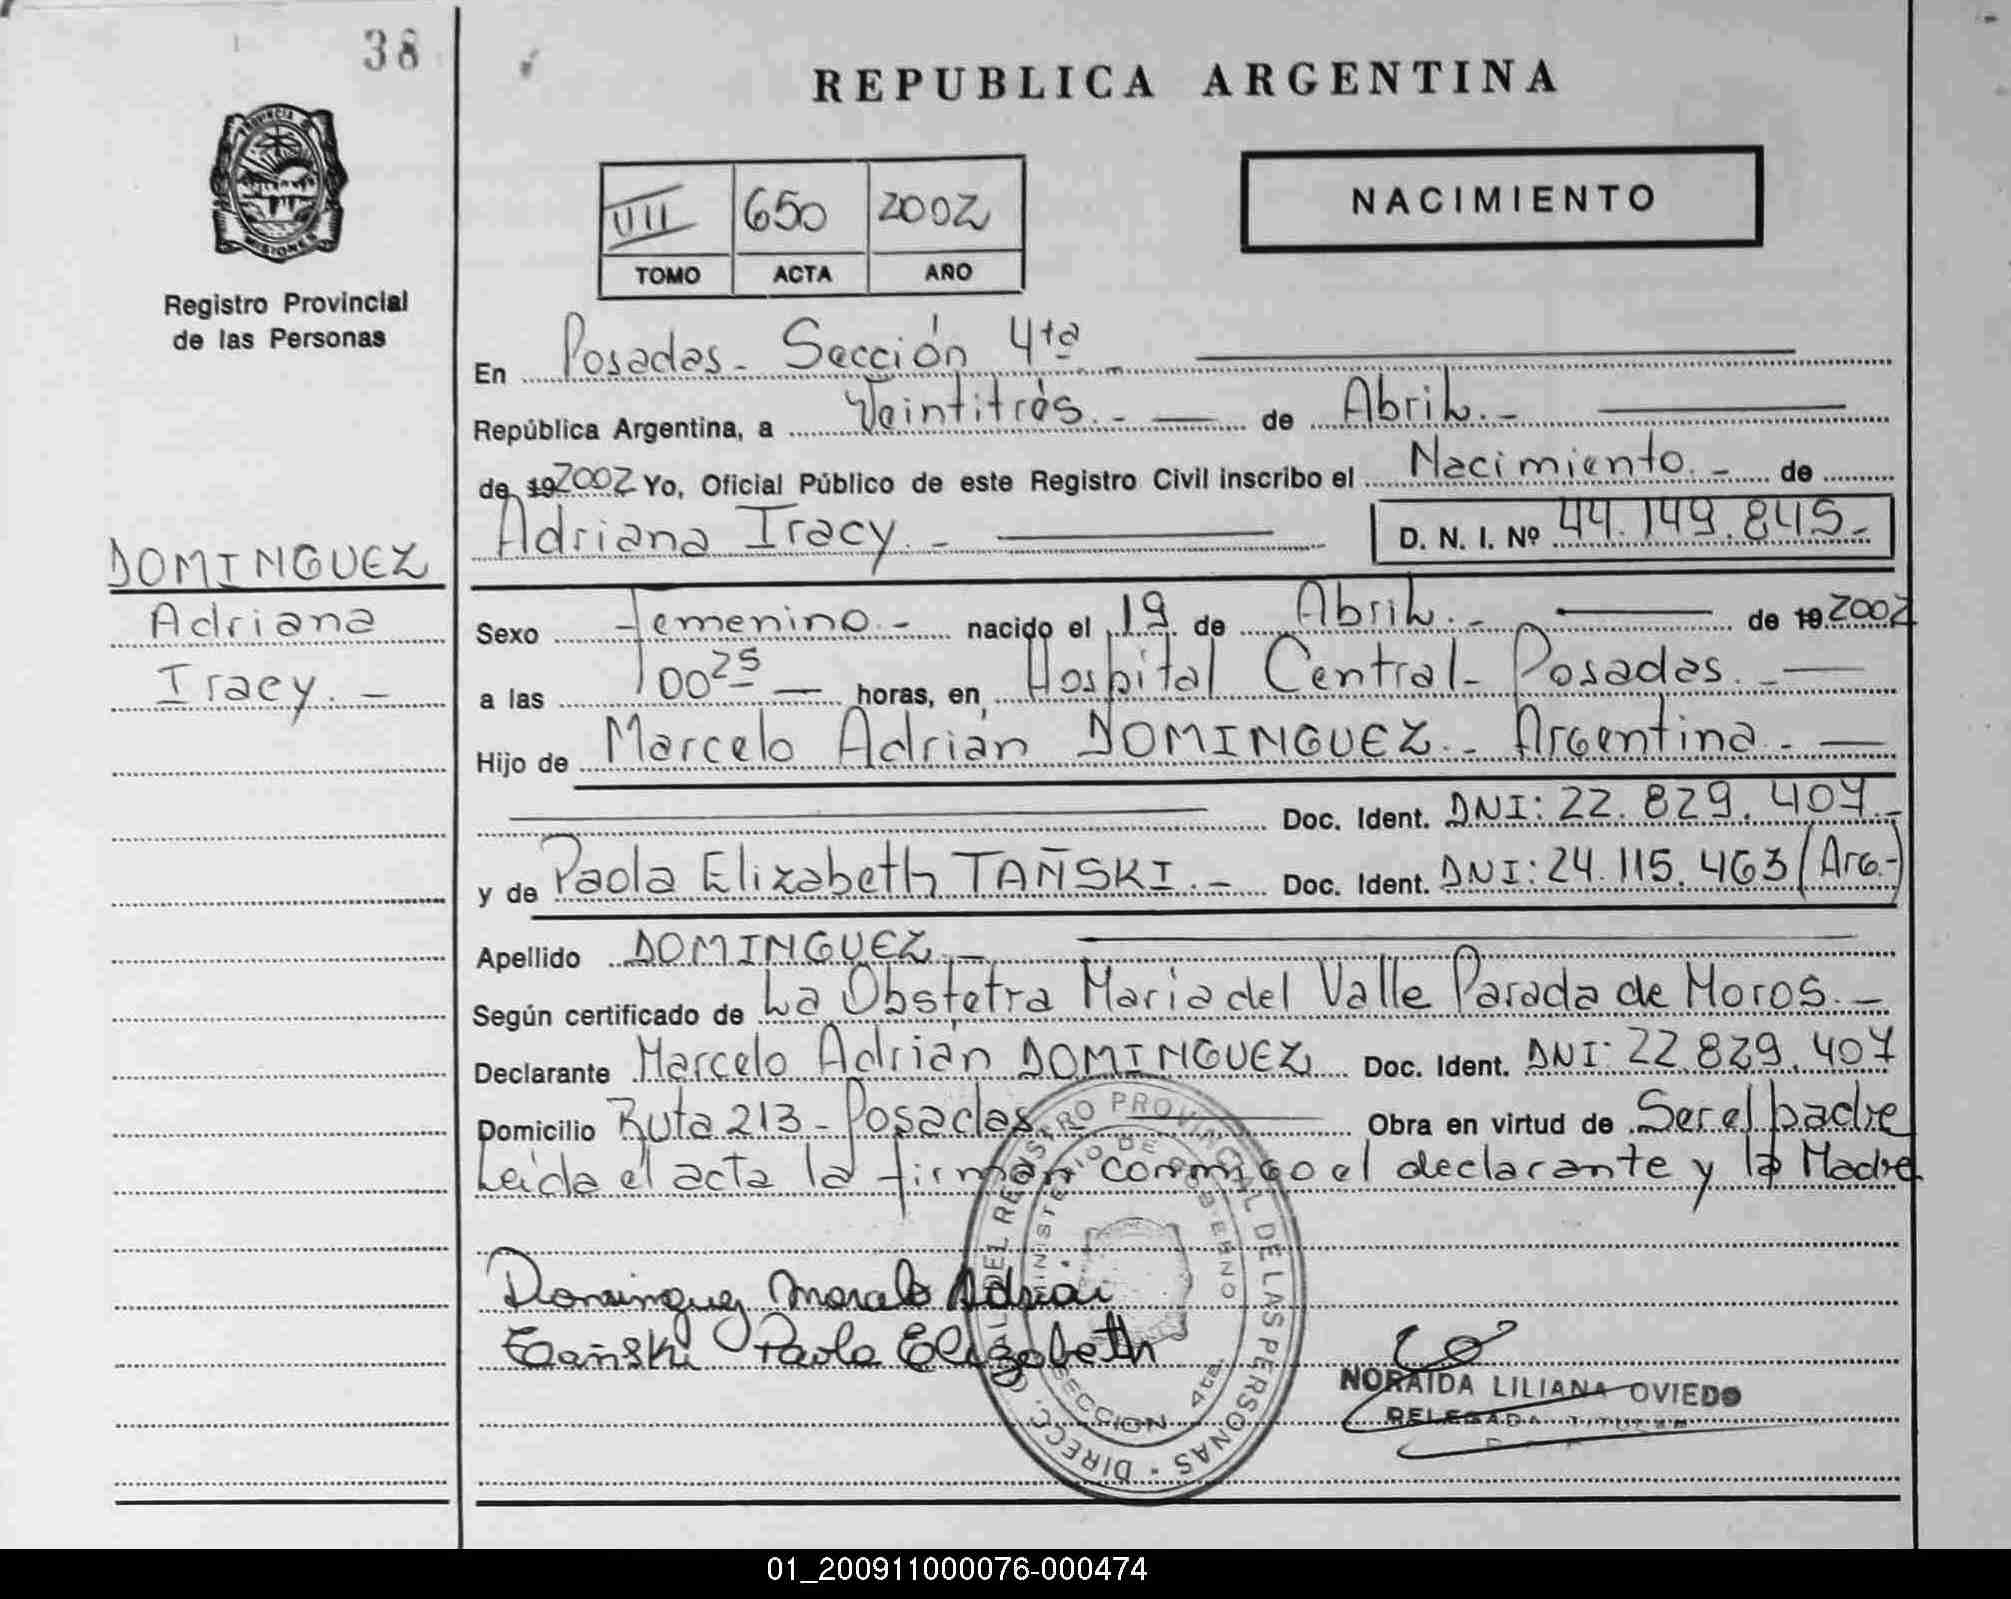 38
REPUBLICA ARGENTINA
PROVINCIA DE
MISIONES
Registro Provincial
de las Personas
NACIMIENTO
VIII 650 2002
TOMO ACTA AÑO
En Posadas - Sección 4ta
República Argentina, a Veintitrés.- de Abril.-
de 192002 Yo, Oficial Público de este Registro Civil inscribo el Nacimiento.- de
Adriana Iracy.- D. N. I. Nº 44.149.845.-
DOMINGUEZ
Adriana
Iracy.-
Sexo Femenino.- nacido el 19 de Abril.- de 192002
a las 00 25 horas, en Hospital Central - Posadas.-
Hijo de Marcelo Adrián DOMINGUEZ.- Argentina.-
Doc. Ident. DNI: 22.829.407.-
y de Paola Elizabeth TAÑSKI.- Doc. Ident. DNI: 24.115.463 (Arg.-)
Apellido DOMINGUEZ.-
Según certificado de La Obstetra Maria del Valle Parada de Moros.-
Declarante Marcelo Adrián DOMINGUEZ Doc. Ident. DNI: 22.829.407
Domicilio Ruta 213 - Posadas Obra en virtud de Ser el padre
Leida el acta la firman conmigo el declarante y la Madre
Dominguez Marcelo Adrian
Tañski Paola Elizabeth
DIRECC. GRAL DEL REGISTRO PROVINCIAL DE LAS PERSONAS
MINISTERIO DE GOBIERNO
SECCION 4ta.
NORAIDA LILIANA OVIEDO
DELEGADA TITULAR
01_200911000076-000474